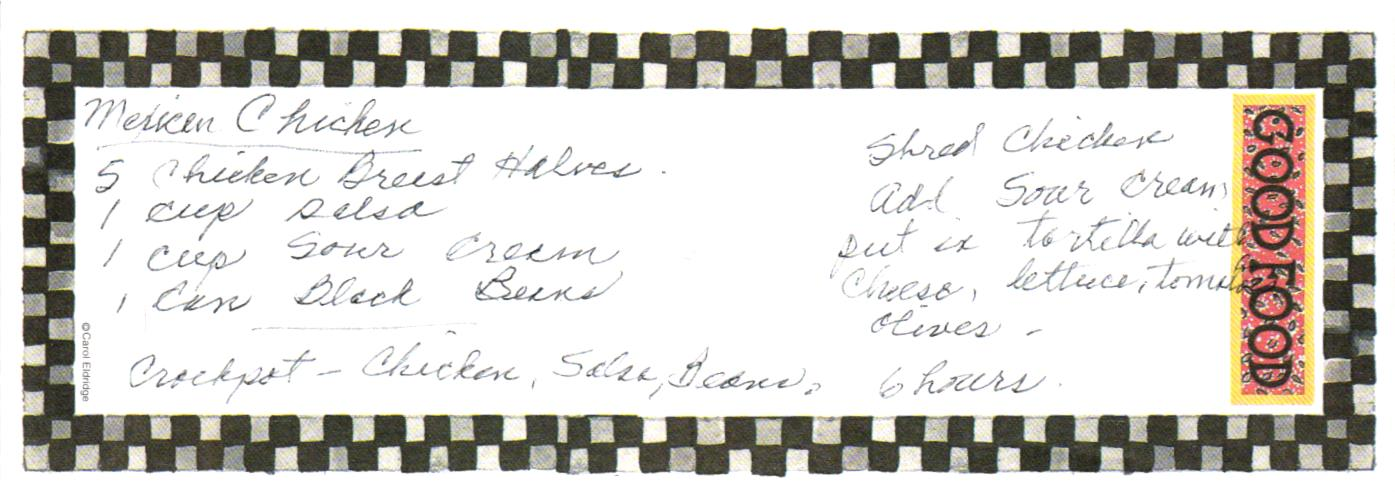 Mexican Chicken
5 Chicken Breast Halves.
1 cup salsa
1 cup Sour Cream
1 Can Black Beans
Crockpot - Chicken, Salsa, Beans, 6 hours.
Shred Chicken
add Sour Cream
put in tortilla with
Cheese, lettuce, tomato
Olives -
GOOD FOOD
©Carol Eldridge